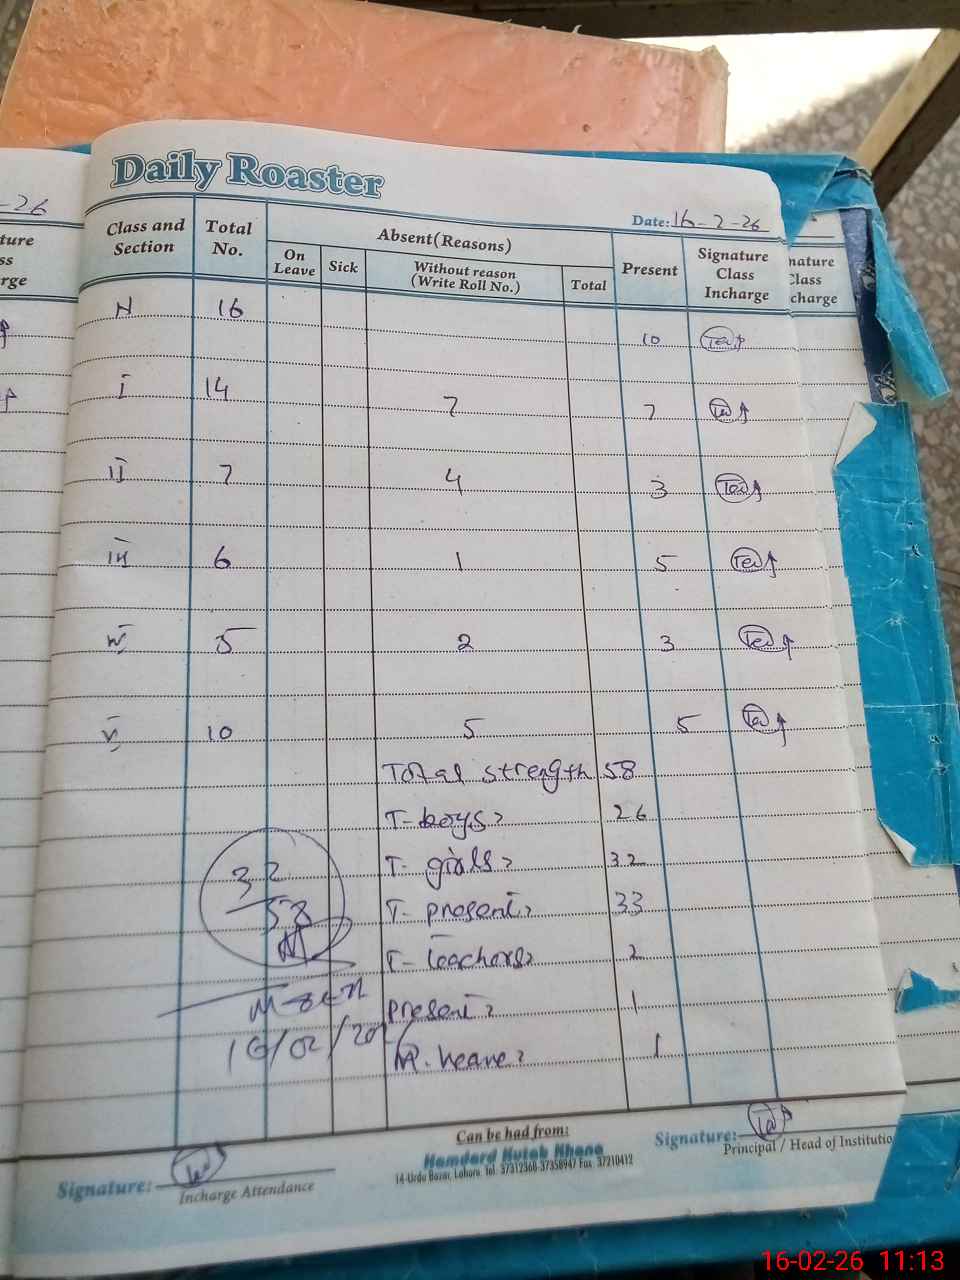 Daily Roaster
Date: 16-2-26
Class and Section Total No. Absent(Reasons) Present Signature Class Incharge
On Leave Sick Without reason (Write Roll No.) Total
N 16 10
I 14 7 7
II 7 4 3
III 6 1 5
IV 5 2 3
V 10 5 5
Total strength 58
T- boys 26
T- girls 32
T- present 33
T- teachers 2
present 1
Leave 1
32
58
16/02/20
Can be had from:
Hamdard Kutab Khana
14-Urdu Bazar, Lahore. Tel: 37312368-37358947 Fax 37210412
Signature:
Incharge Attendance
Signature:
Principal / Head of Institutio
-26
ture
ss
rge
nature
Class
charge
16-02-26 11:13